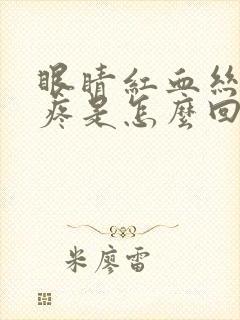 眼睛紅血絲
疼是怎麼回
米廖雷